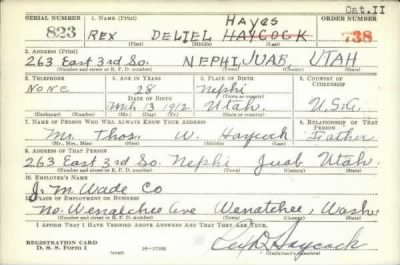 Cat. II
SERIAL NUMBER 1. NAME (Print) ORDER NUMBER
Hayes
823 REX DELIEL HAYCOCK 738
(First) (Middle) (Last)
2. ADDRESS (Print)
263 EAST 3rd SO. NEPHI, JUAB, UTAH
(Number and street or R. F. D. number) (Town) (County) (State)
3. TELEPHONE 4. AGE IN YEARS 5. PLACE OF BIRTH 6. COUNTRY OF CITIZENSHIP
None 28 Nephi
DATE OF BIRTH
Mch. 13 1912 Utah. U.S.A.
(Mo.) (Day) (Yr.)
7. NAME OF PERSON WHO WILL ALWAYS KNOW YOUR ADDRESS 8. RELATIONSHIP OF THAT PERSON
Mr. Thos. W. Haycock Father
(Mr., Mrs., Miss) (First) (Middle) (Last)
9. ADDRESS OF THAT PERSON
263 East 3rd So. Nephi Juab Utah.
(Number and street or R. F. D. number) (Town) (County) (State)
10. EMPLOYER'S NAME
J. M. Wade Co
11. PLACE OF EMPLOYMENT OR BUSINESS
No. Wenatchee Ave Wenatchee, Wash.
(Number and street or R. F. D. number) (Town) (County) (State)
I AFFIRM THAT I HAVE VERIFIED ABOVE ANSWERS AND THAT THEY ARE TRUE.
REGISTRATION CARD
D. S. S. Form 1 (over) Rex D. Haycock
(Registrant's signature)